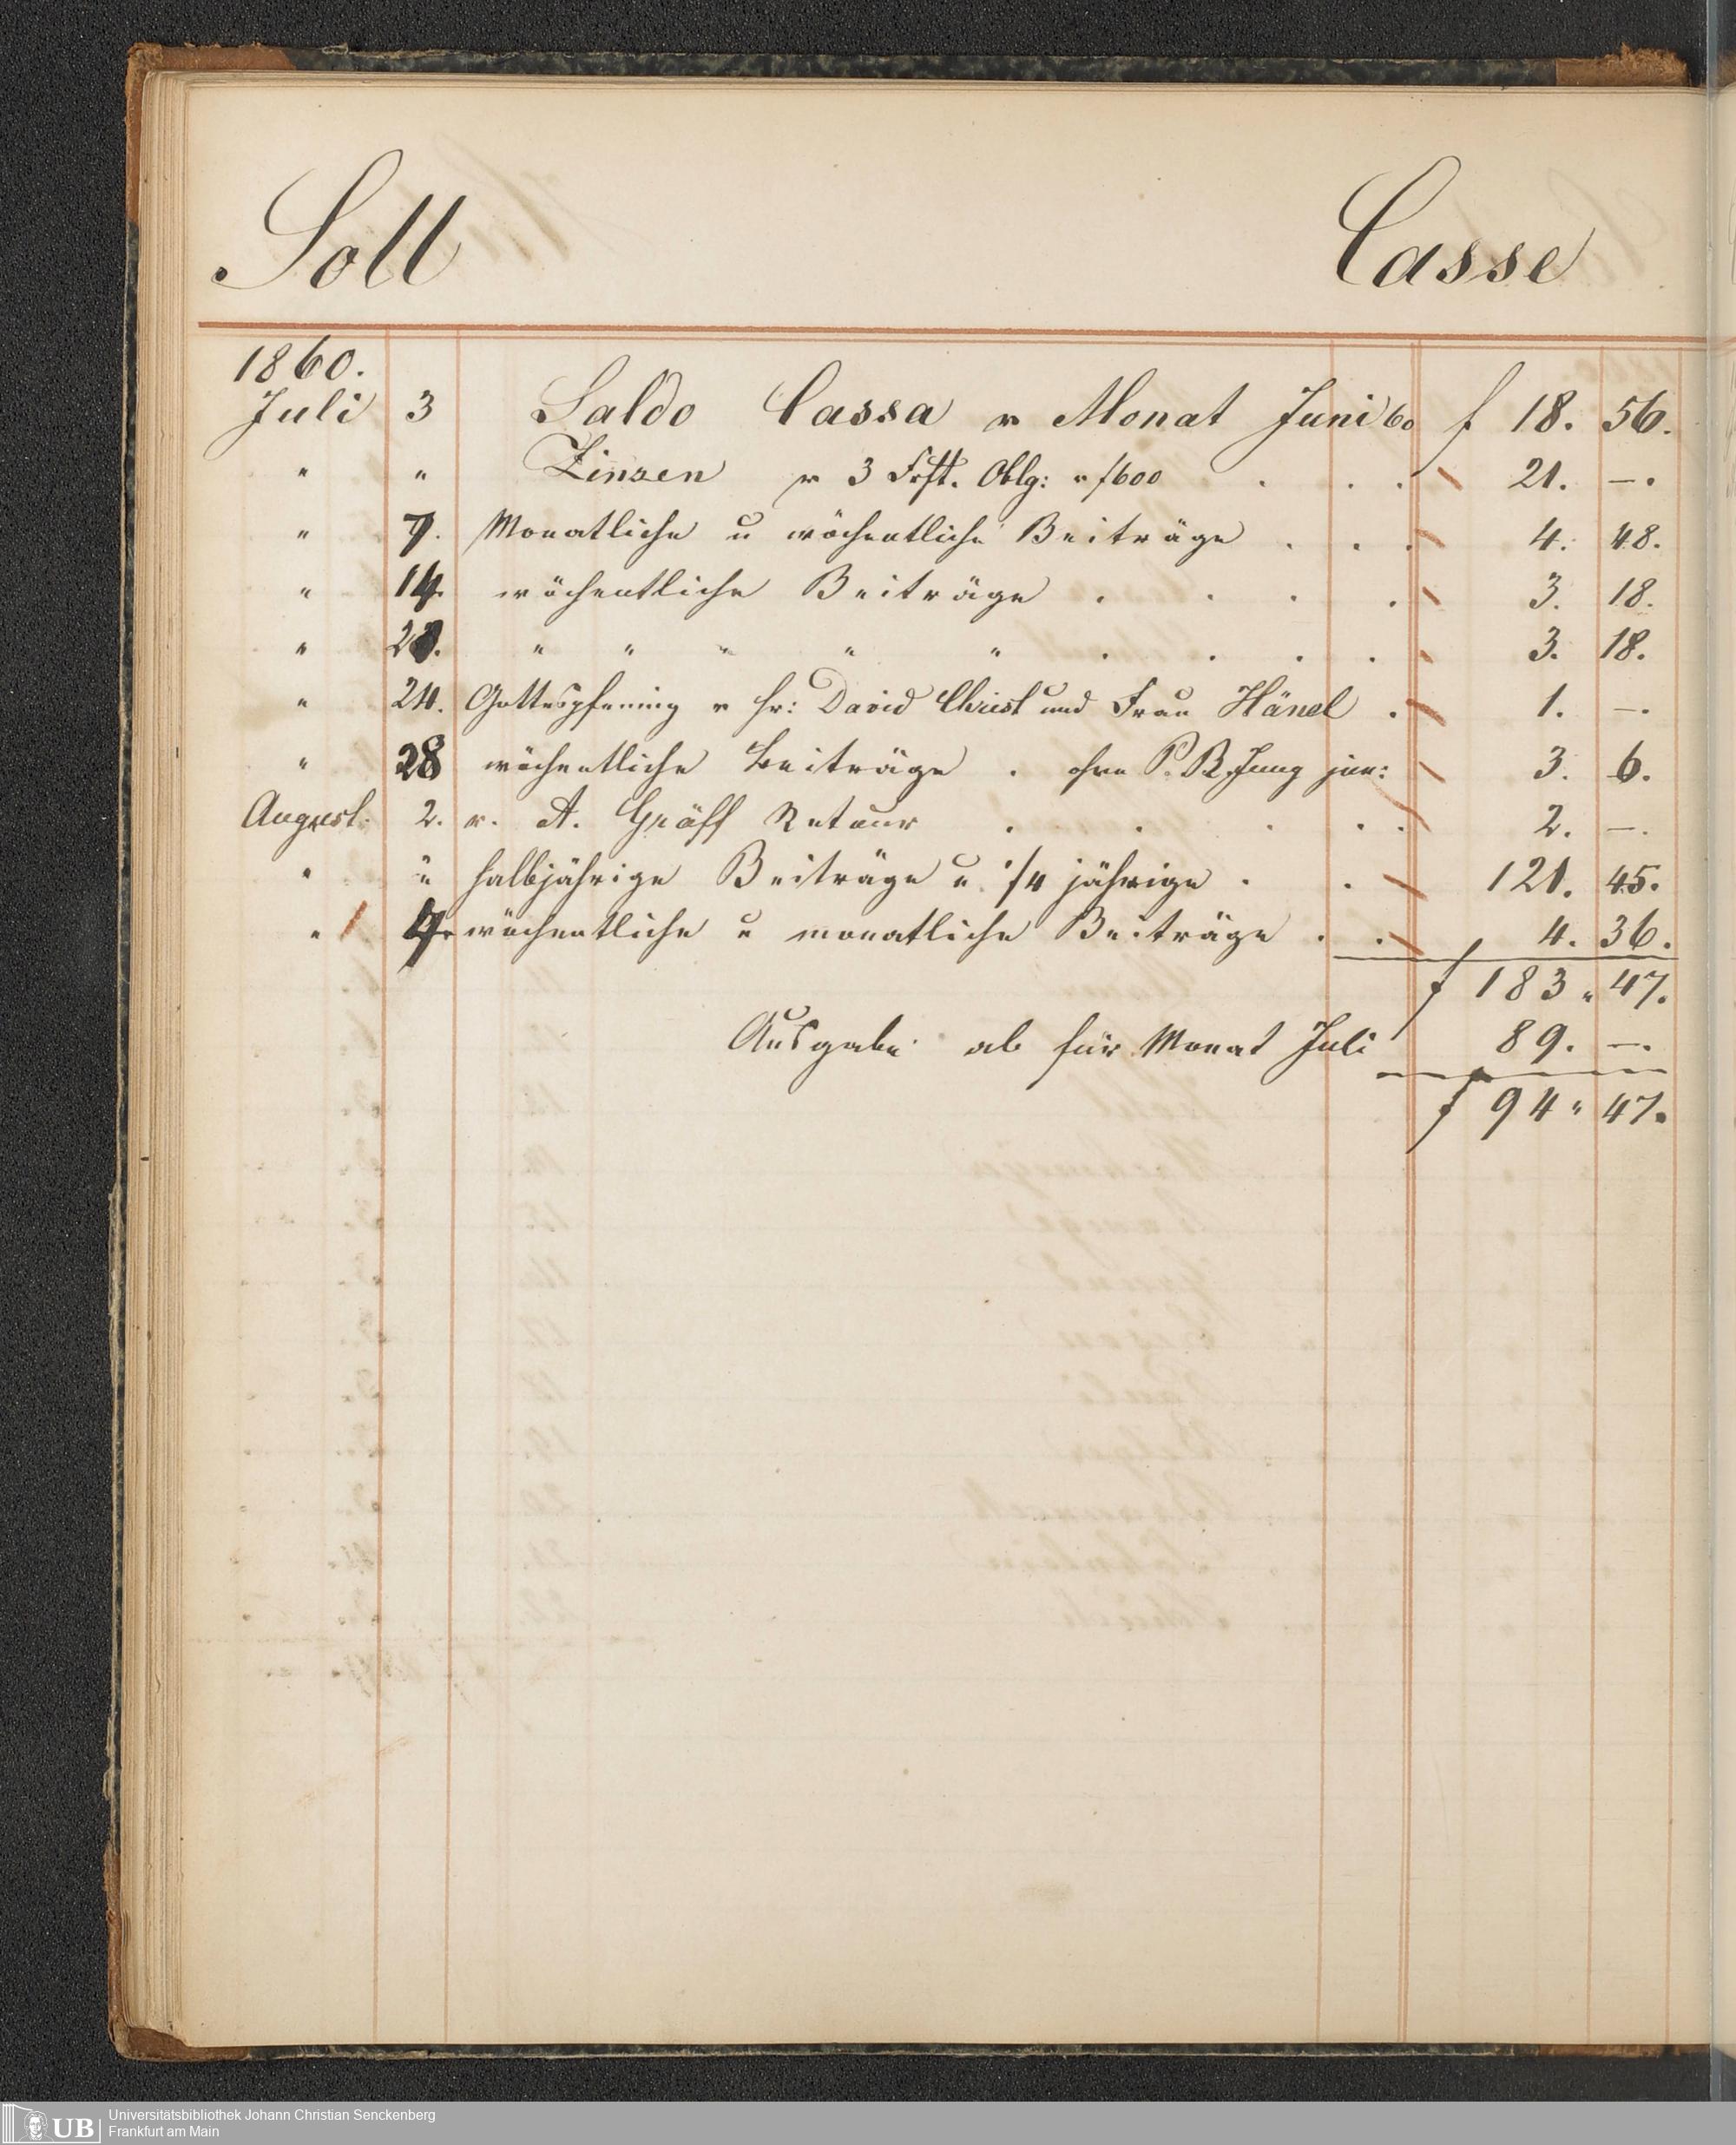 Soll Casse
1860.
Juli 3 Saldo Cassa v Monat Juni 60 f 18. 56.
" " Zinsen v 3 Frft. Oblg: v f600 . . . 21. —.
" 7. Monatliche u wöchentliche Beiträge . . . 4. 48.
" 14. wöchentliche Beiträge . . . . 3. 18.
" " " " " " . . . . 3. 18.
" 24. Gottespfennig v Hr: David Christ und Frau Hänel . 1. —.
" 28 wöchentliche Beiträge . ohne P. B. Jung jun: 3. 6.
August. 2. v. A. Gräff Retour . . . . . 2. —.
" " halbjährige Beiträge u. 1/4 jährige . . 121. 45.
" 4. wöchentliche u monatliche Beiträge . . 4. 36.
f 183 " 47.
Ausgabe ab für Monat Juli 89. —.
f 94 " 47.
UB Universitätsbibliothek Johann Christian Senckenberg
Frankfurt am Main